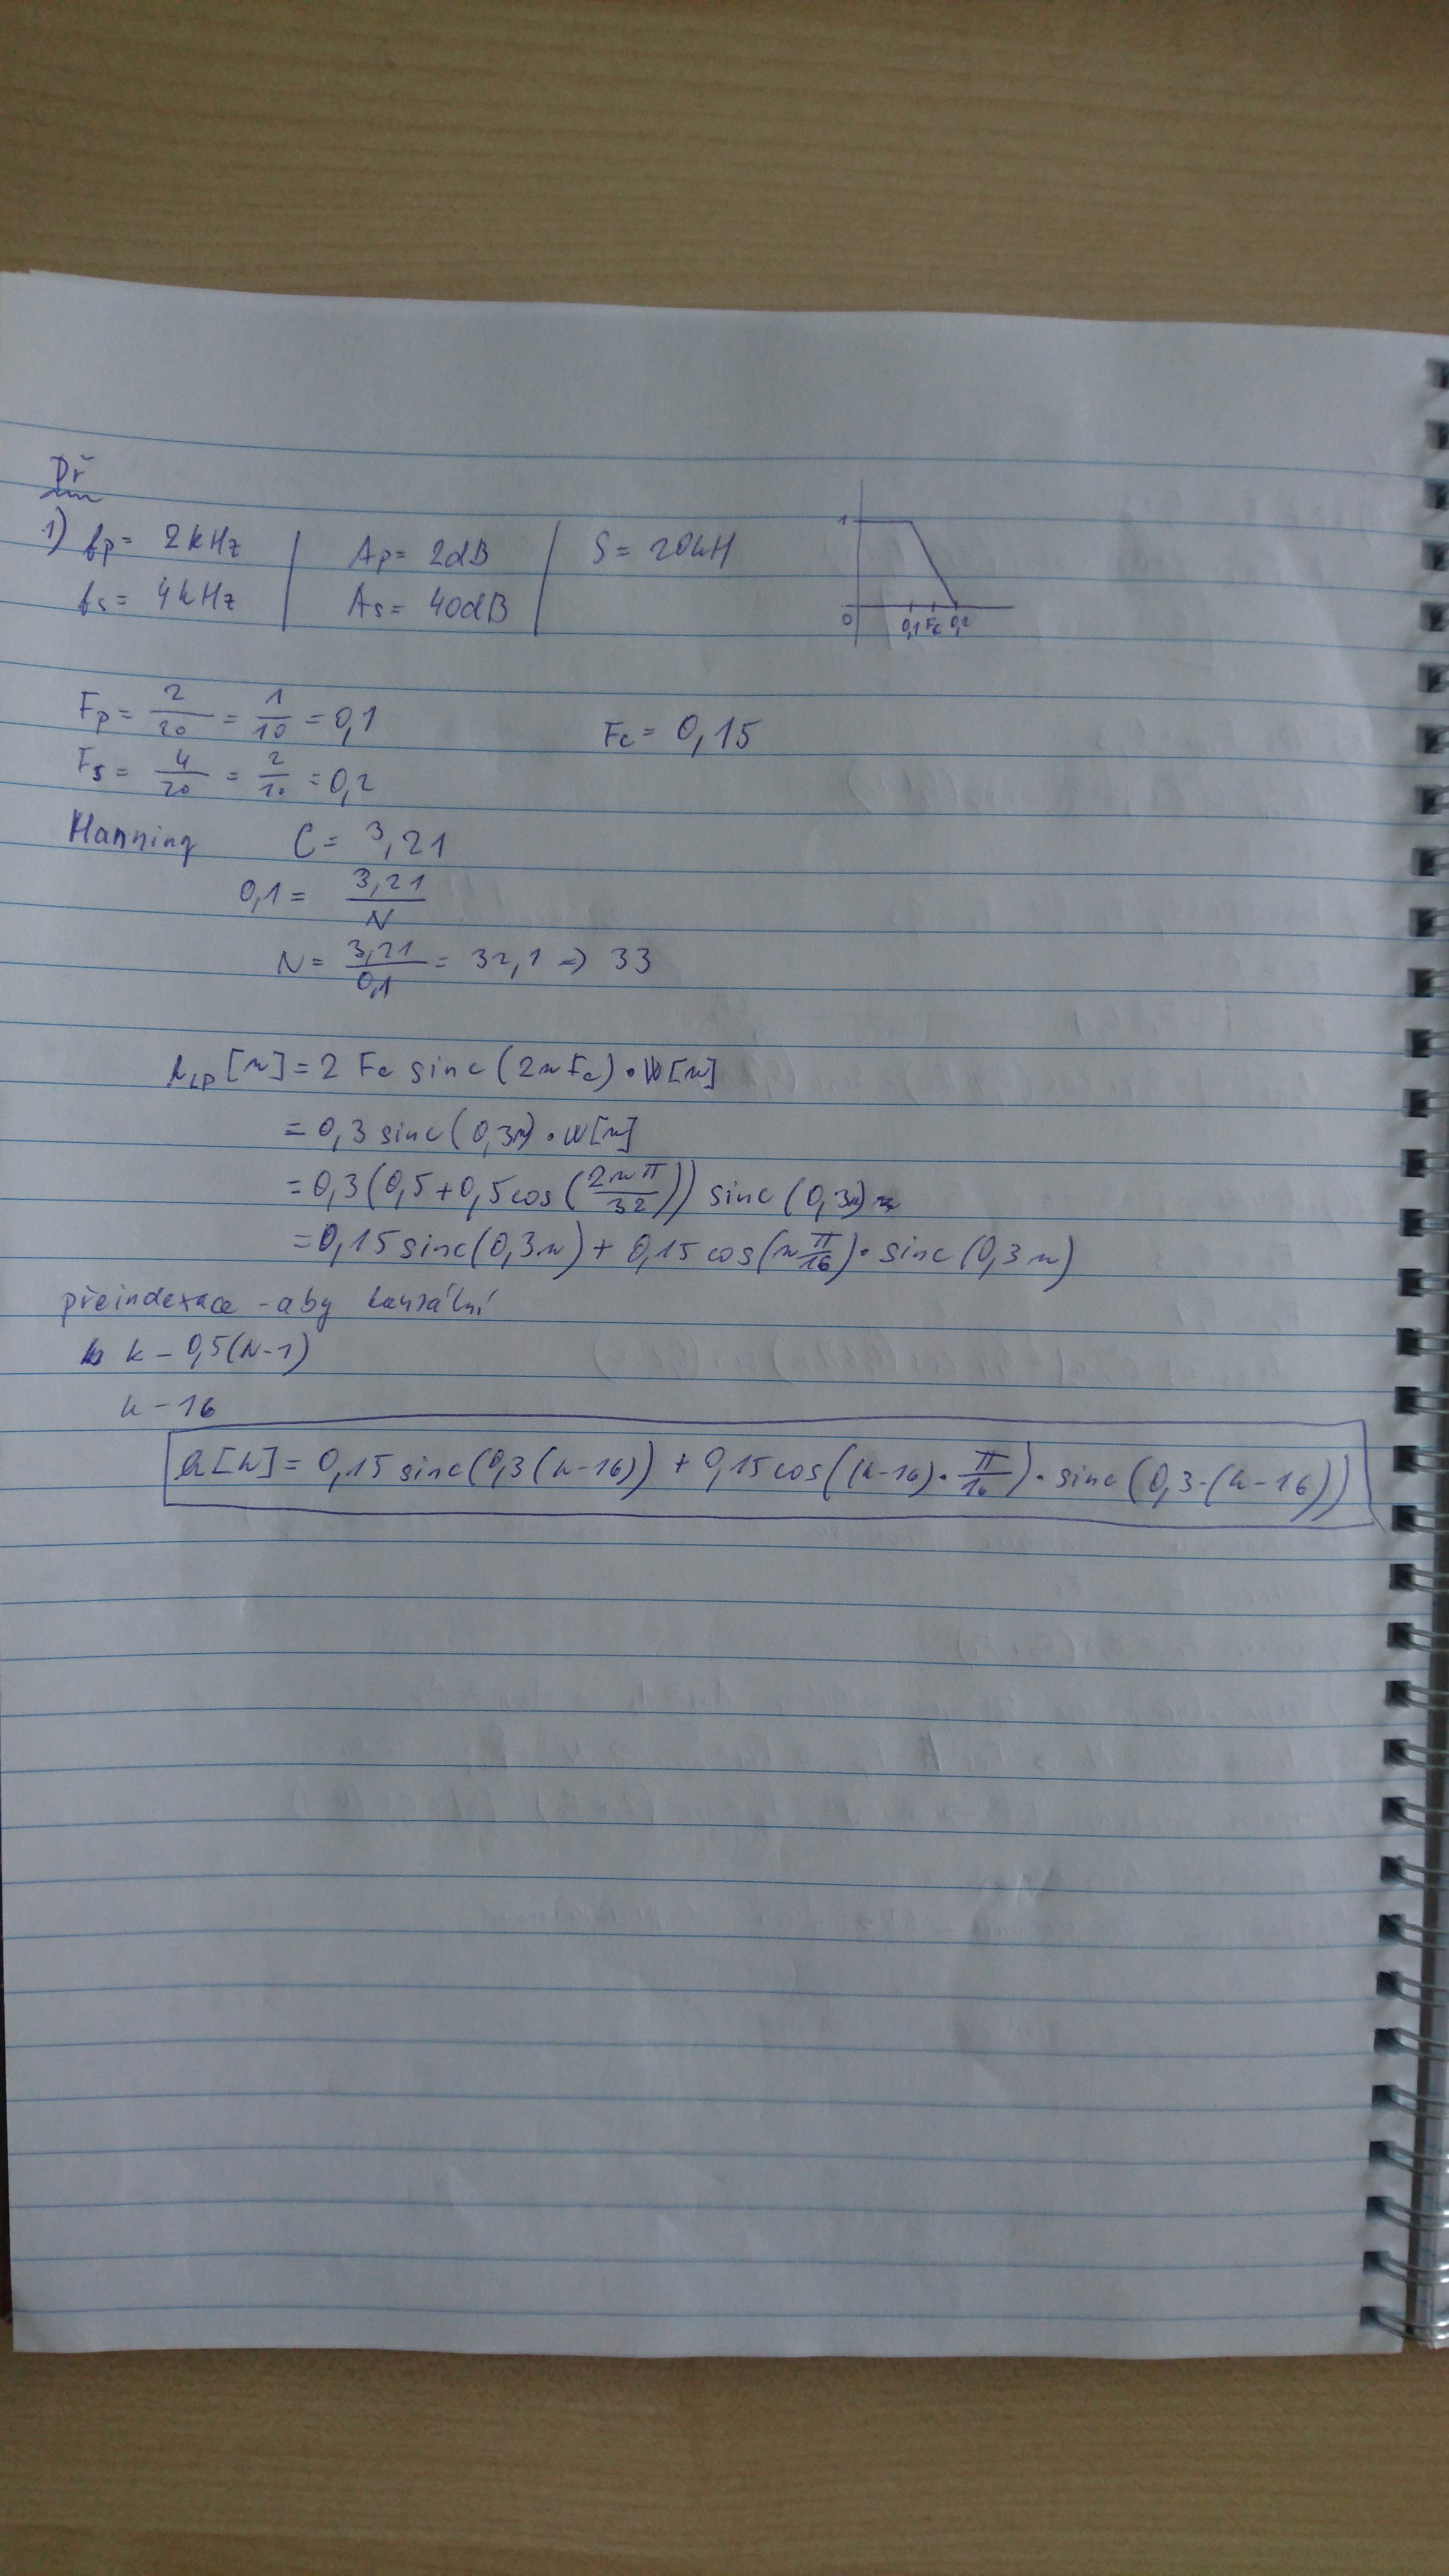 Př
1) fp= 2kHz | Ap= 2dB | S= 20kH
fs= 4kHz | As= 40dB
1
0 0,1 Fc 0,2
Fp= 2/20 = 1/10 = 0,1 Fc= 0,15
Fs= 4/20 = 2/10 = 0,2
Hanning C= 3,21
0,1= 3,21/N
N= 3,21/0,1 = 32,1 => 33
hLP[n]=2 Fc sinc(2nFc)·W[n]
=0,3 sinc(0,3n)·W[n]
=0,3(0,5+0,5cos(2nπ/32)) sinc(0,3n)
=0,15sinc(0,3n)+ 0,15cos(nπ/16)·sinc(0,3n)
přeindexace -aby kauzální
k-0,5(N-1)
k-16
h[k]= 0,15sinc(0,3(k-16)) + 0,15cos((k-16)·π/16)·sinc(0,3·(k-16))